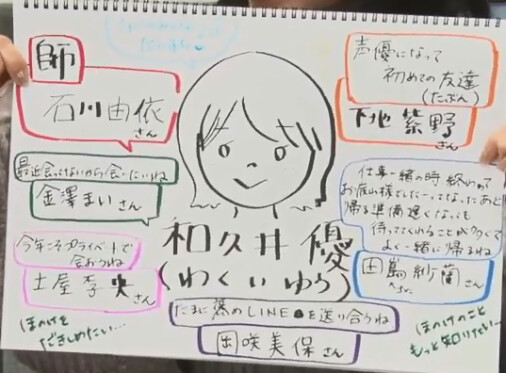 師
石川由依
さん
声優になって
初めての友達
(たぶん)
下地 紫野
さん
最近会ってないから会いたいね
金澤まいさん
仕事一緒の時 終わって
お疲れ様でしたーってなったあと
帰る準備遅くなっても
待っててくれることが多くて
よく一緒に帰るね
田嶌紗蘭さん
今年こそプライベートで
会おうね
土屋李央さん
和久井優
(わくいゆう)
たまに謎のLINEを送り合うね
岡咲美保さん
ほのけを
だきしめたい…
ほのけのこと
もっと知りたい…